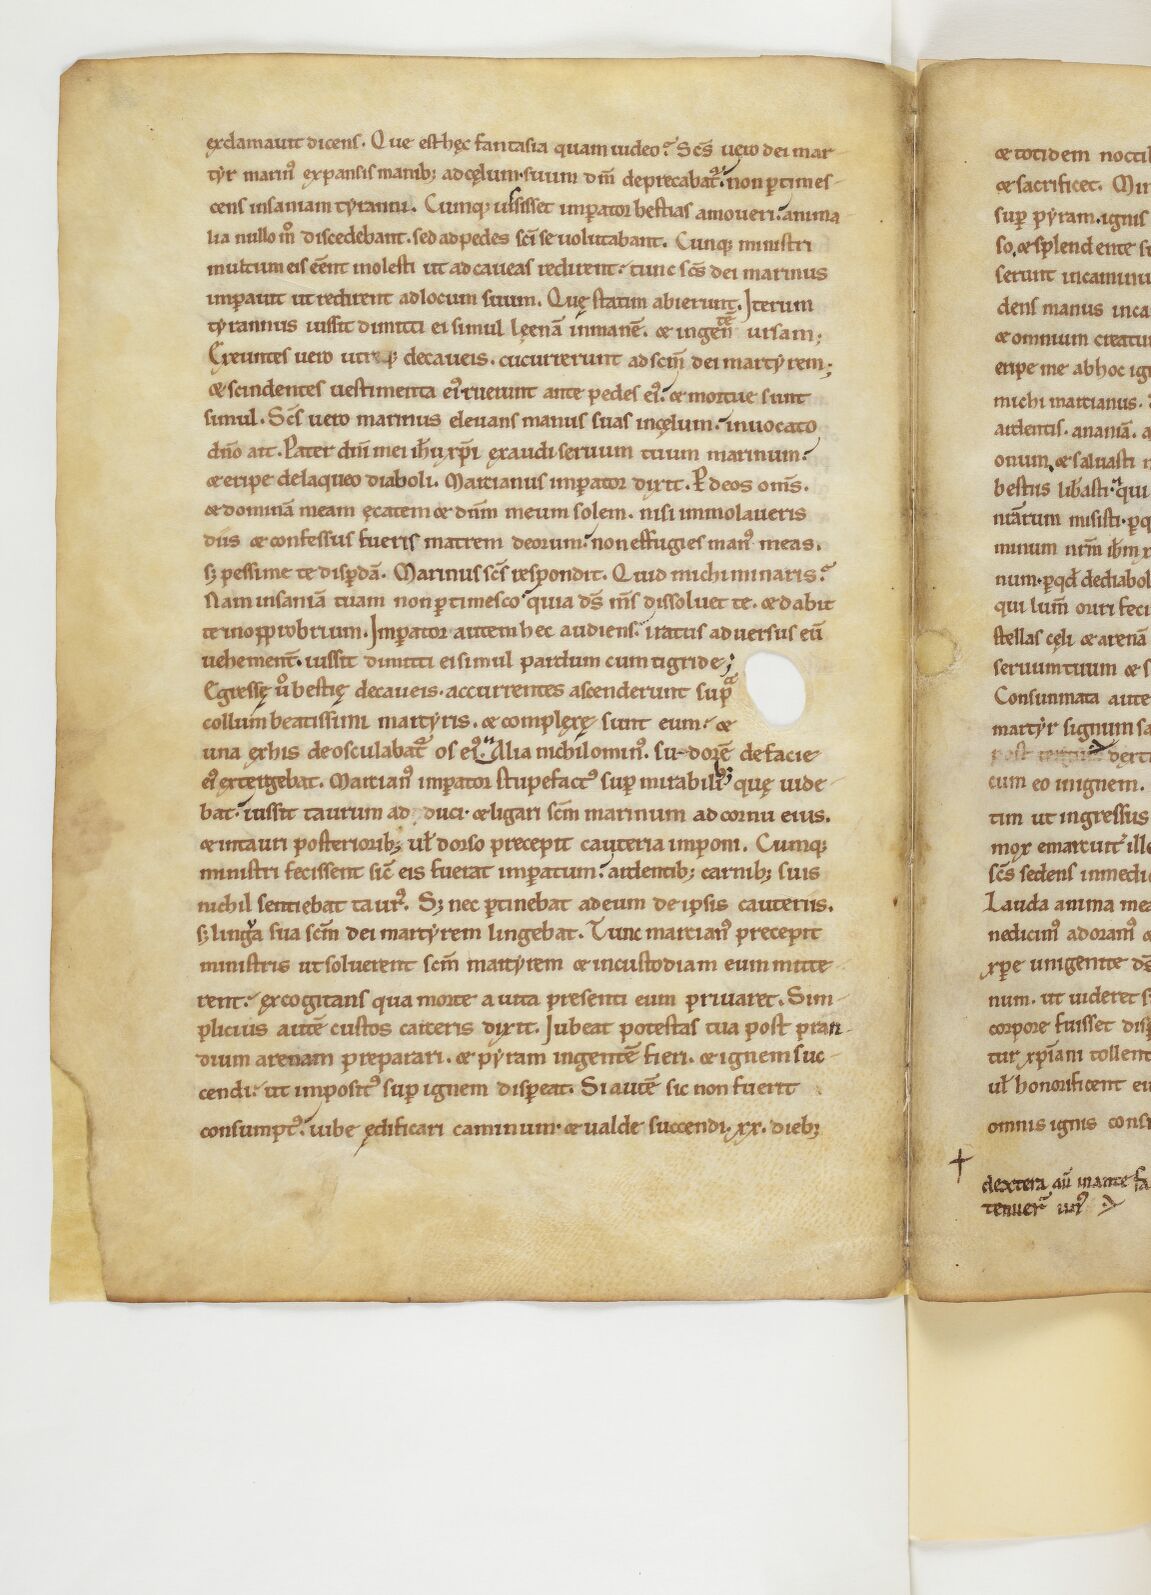 exclamauit dicens. Que est hęc fantasia quam uideo? Scs̄ uero dei mar
tyr marin᷒ expansis manib; ad cęlum suum dm̄ deprecabat᷑. non ꝑtimes
cens insaniam tyranni. Cumq; uisisset imꝑator bestias amoueri. anima
lia nullo m̊ discedebant. sed ad pedes sci̅ se uolutabant. Cunq; ministri
multum eis eēnt molesti ut ad caueas redirent. tunc scs̄ dei marinus
imꝑauit ut redirent ad locum suum. Quę statim abierunt. Iterum
tyrannus iussit dimitti ei simul leenā inmanē. & ingentē ursam;
Exeuntes uero utręq; de caueis. cucurrerunt ad scm̄ dei martyrem;
& scindentes uestimenta ei᷒ ruerunt ante pedes ei᷒. & mortue sunt
simul. Scs̄ uero marinus eleuans manus suas in cęlum. inuocato
dn̄o ait. Pater dn̄i mei ih̄u xp̄i exaudi seruum tuum marinum.
& eripe de laqueo diaboli. Marcianus imꝑator dixit. P deos om̄s.
& dominā meam ęcatem & dn̄m meum solem. nisi immolaueris
diis & confessus fueris matrem deorum. non effugies man᷒ meas.
s; pessime te disꝑdā. Marinus scs̄ respondit. Quid michi minaris?
Nam insaniā tuam non ꝑtimesco quia ds̄ m̄s dissoluet te. & dabit
te in opprobrium. Imꝑator autem hec audiens. iratus aduersus eū
uehement̄. iussit dimitti ei simul pardum cum tigride;
Egressę ů bestię de caueis. accurrentes ascenderunt supra
collum beatissimi martyris. & complexę sunt eum. &
una ex his deosculabat᷑ os ei᷒. Alia nichilomin᷒. sudorē de facie
ei᷒ extergebat. Marcian᷒ imꝑator stupefact᷒ suꝑ mirabilib; quę uide
bat. iussit taurum adduci. & ligari scm̄ marinum ad cornu eius.
& in tauri posteriorib; ul̄ dorso precepit cauteria imponi. Cumq;
ministri fecissent sic̄ eis fuerat imꝑatum. ardentib; carnib; suis
nichil sentiebat taur᷒. S; nec ꝑtinebat ad eum de ipsis cauteriis.
s; lingua sua scm̄ dei martyrem lingebat. Tunc marcian᷒ precepit
ministris ut soluerent scm̄ martyrem & in custodiam eum mitte
rent. excogitans qua morte a uita presenti eum priuaret. Sim
plicius autē custos carceris dixit. Iubeat potestas tua post pran
dium arenam preparari. & pyram ingentē fieri. & ignem suc
cendi. ut imposit᷒ suꝑ ignem disꝑeat. Si autē sic non fuerit
consumpt᷒. iube ędificari caminum. & ualde succendi. xx. dieb;
& totidem noctib
& sacrificet.
suꝑ pyram. ignis
so. & splendente
serunt in caminu
dens manus inca
& omnium creatu
eripe me ab hoc ig
michi marcianus.
ardentis. ananiā.
onum. & saluasti
bestiis lib̄asti. qui
miarum misisti.
minum nr̄m ih̄m
num. ꝑ qd̄ de diabol
qui lum̄ oriri feci
stellas cęli & arenā
seruum tuum & s
Consummata aute
martyr signum sa
dext
cum eo in ignem.
tim ut ingressus
mox emarcuit ille
scs̄ sedens in medio
Lauda anima mea
nedicim᷒ adoram᷒
xp̄e unigenite ds̄
num. ut uideret
corpore fuisset disꝑ
tur xp̄iani tollent
ul̄ honorificent ei
omnis ignis cons
dextera aū
tenuer᷑